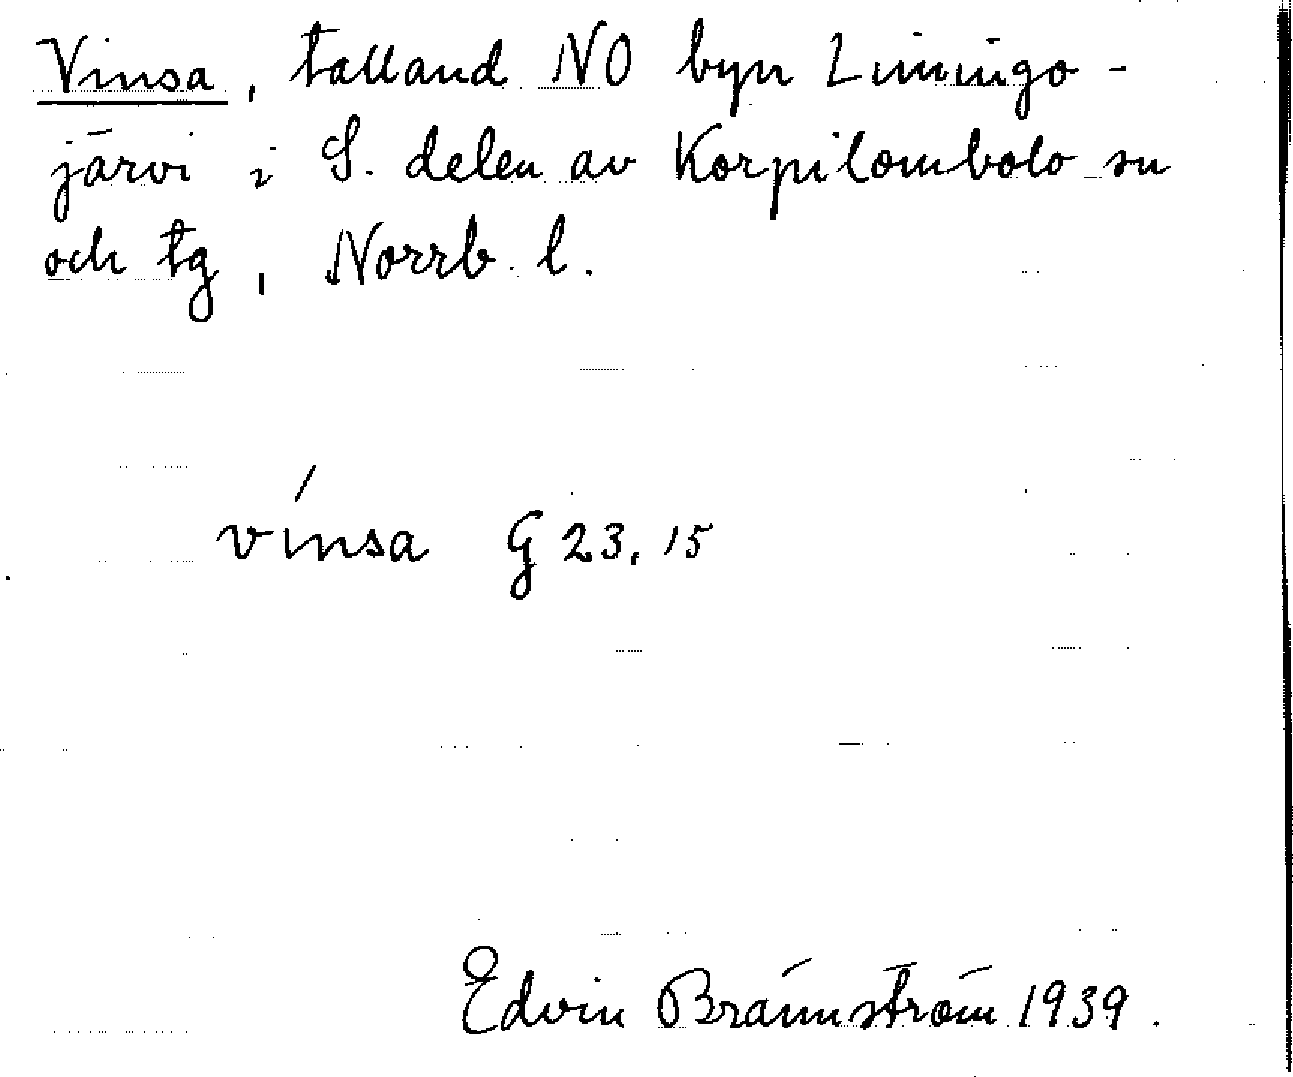 Vinsa, talland NO byn Limingo-
järvi i S. delen av Korpilombolo sn
och tg, Norrb. l.
vinsa G 23, 15
Edvin Brännström 1939.